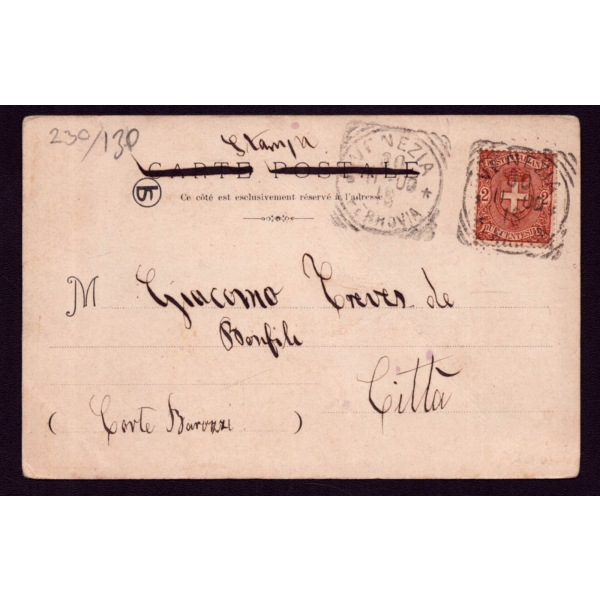 230/130
Stampa
CARTE POSTALE
Ce côté est exclusivement réservé à l'adresse
VENEZIA
FERROVIA
2 2
M Giacomo Treves de
Bonfili
Città
(Corte Barozzi)